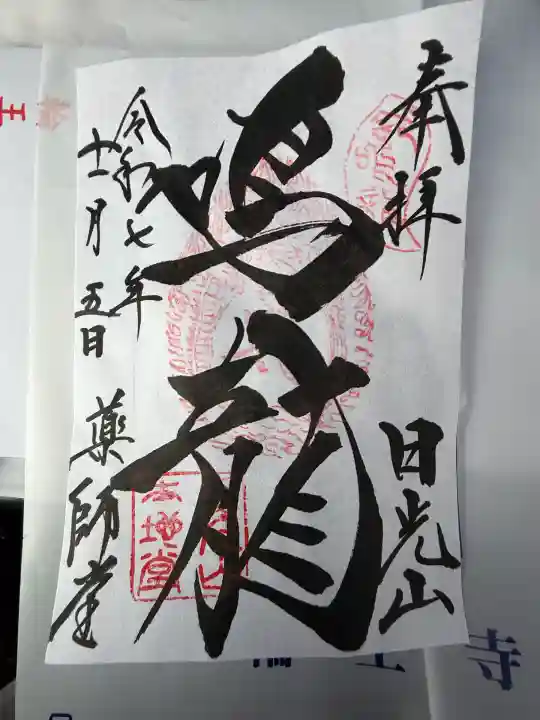 奉拝
日光山
鳴龍
令和七年
十一月五日
薬師堂
本地堂
王寺